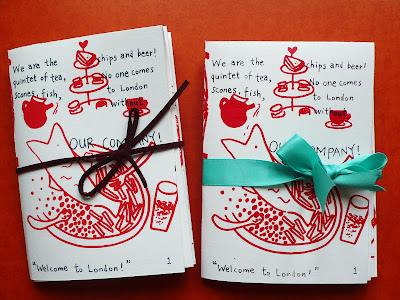 We are the
quintet of tea,
scones, fish,
chips and beer!
No one comes
to London
without
OUR COMPANY!
"Welcome to London!"
1
We are the
quintet of tea,
scones, fish,
chips and beer!
No one comes
to London
without
OUR COMPANY!
"Welcome to London!"
1